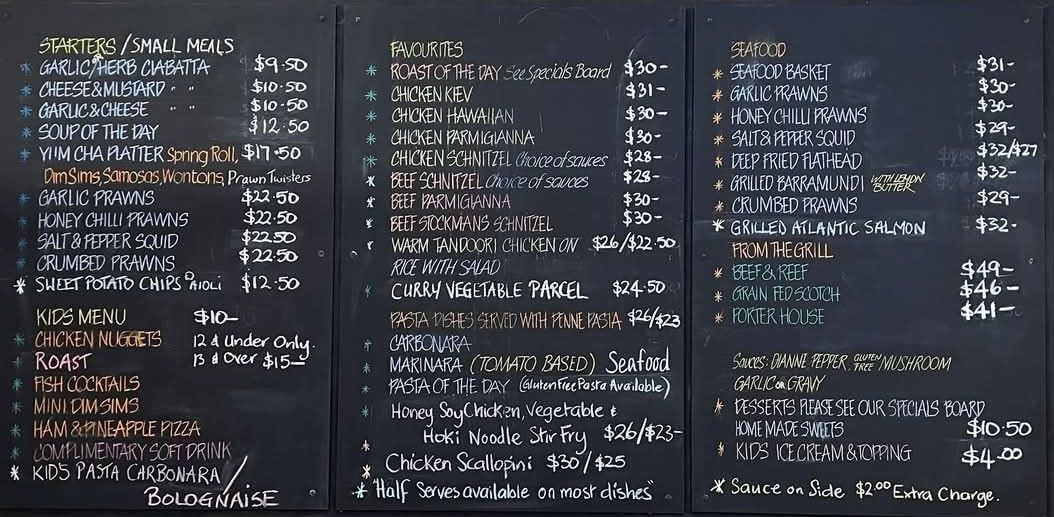 STARTERS / SMALL MEALS
* GARLIC/HERB CIABATTA $9.50
* CHEESE & MUSTARD " " $10.50
* GARLIC & CHEESE " " $10.50
* SOUP OF THE DAY $12.50
* YUM CHA PLATTER Spring Roll, $17.50
Dim Sims, Samosas, Wontons, Prawn Twisters
* GARLIC PRAWNS $22.50
* HONEY CHILLI PRAWNS $22.50
* SALT & PEPPER SQUID $22.50
* CRUMBED PRAWNS $22.50
* SWEET POTATO CHIPS AIOLI $12.50
KIDS MENU $10-
* CHICKEN NUGGETS 12 & Under Only.
* ROAST 13 & Over $15-
* FISH COCKTAILS
* MINI DIM SIMS
* HAM & PINEAPPLE PIZZA
* COMPLIMENTARY SOFT DRINK
* KIDS PASTA CARBONARA /
BOLOGNAISE
FAVOURITES
* ROAST OF THE DAY See Specials Board $30-
* CHICKEN KIEV $31-
* CHICKEN HAWAIIAN $30-
* CHICKEN PARMIGIANNA $30-
* CHICKEN SCHNITZEL Choice of sauces $28-
* BEEF SCHNITZEL Choice of sauces $28-
* BEEF PARMIGIANNA $30-
* BEEF STOCKMANS SCHNITZEL $30-
* WARM TANDOORI CHICKEN ON $26/$22.50
RICE WITH SALAD
* CURRY VEGETABLE PARCEL $24.50
PASTA DISHES SERVED WITH PENNE PASTA $26/$23
* CARBONARA
* MARINARA (TOMATO BASED) Seafood
* PASTA OF THE DAY (Gluten Free Pasta Available)
* Honey Soy Chicken, Vegetable &
Hoki Noodle Stir Fry $26/$23-
* Chicken Scallopini $30/$25
* "Half Serves available on most dishes"
SEAFOOD
* SEAFOOD BASKET $31-
* GARLIC PRAWNS $30-
* HONEY CHILLI PRAWNS $30-
* SALT & PEPPER SQUID $29-
* DEEP FRIED FLATHEAD $32/$27
* GRILLED BARRAMUNDI WITH LEMON BUTTER $32-
* CRUMBED PRAWNS $29-
* GRILLED ATLANTIC SALMON $32-
FROM THE GRILL
* BEEF & REEF $49-
* GRAIN FED SCOTCH $46-
* PORTER HOUSE $41-
Sauces: DIANNE PEPPER, GLUTEN FREE MUSHROOM
GARLIC or GRAVY
* DESSERTS PLEASE SEE OUR SPECIALS BOARD
HOME MADE SWEETS $10.50
* KIDS ICE CREAM & TOPPING $4.00
* Sauce on Side $2.00 Extra Charge.